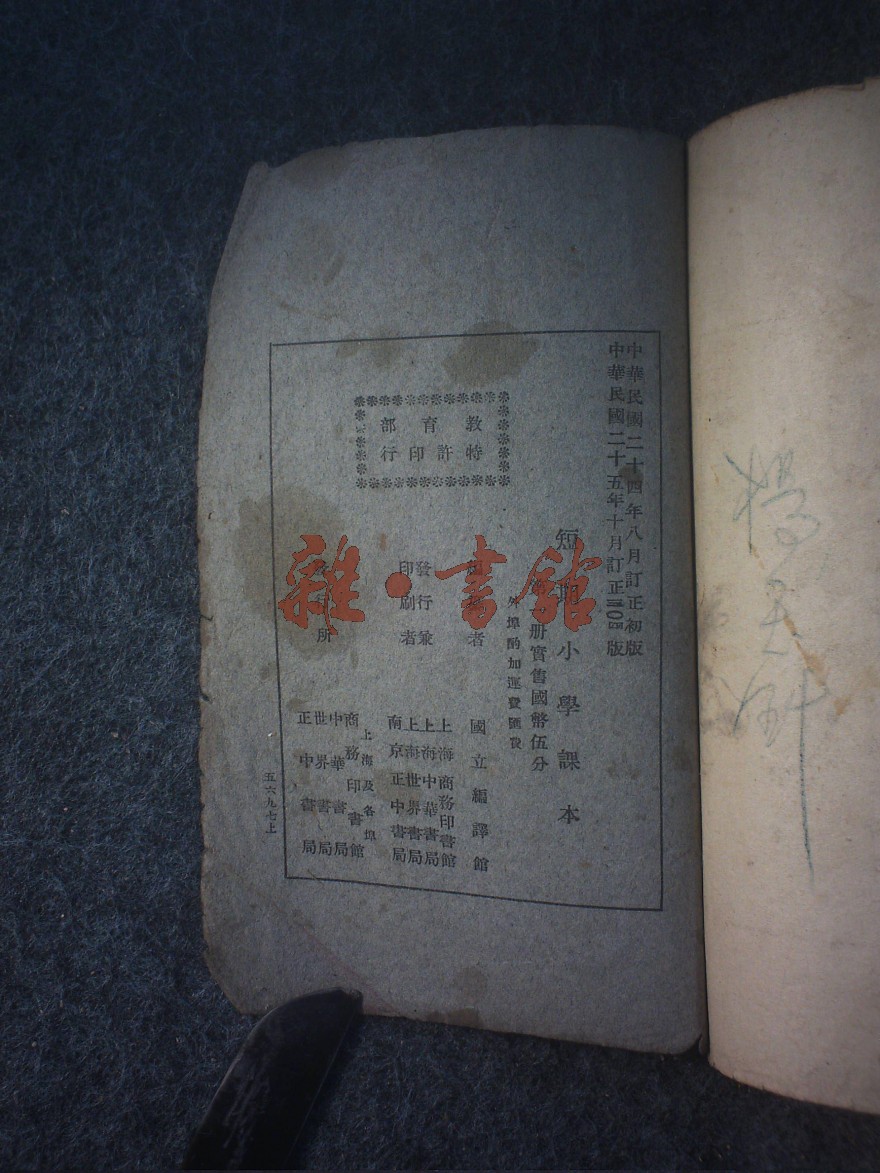 中華民國二十四年八月訂正初版
中華民國二十五年十月訂正三〇四版
短期小學課本
册實售國幣伍分
外埠酌加運費匯費
教育部
特許印行
者
國立編譯館
發行兼
印刷者
上海商務印書館
上海中華書局
上海世界書局
南京正中書局
所
上海及各埠
商務印書館
中華書局
世界書局
正中書局
五六九七上
雜·書館
楊